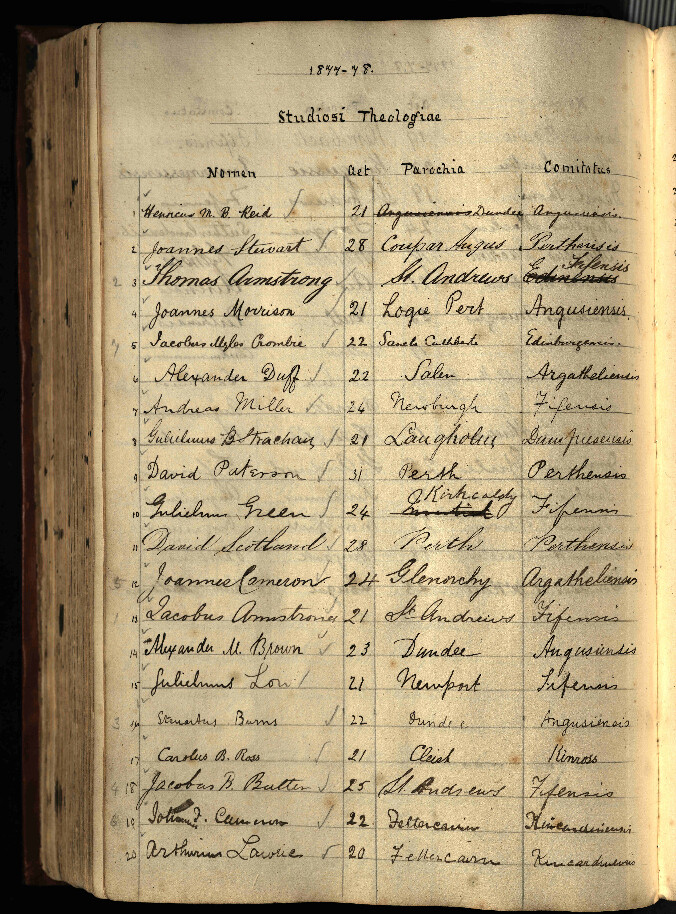 1877-78.
Studiosi Theologiae
Nomen Aet Parochia Comitatus
1 Henricus M. B. Reid 21 Angusiensis Dundee Angusiensis.
2 Joannes Stewart 28 Coupar Angus Perthensis
2 3 Thomas Armstrong St. Andrews Edinensis Fifensis
4 Joannes Morrison 21 Logie Pert Angusiensis.
7 5 Jacobus Myles Crombie 22 Sancti Cuthberti Edinburgensis.
6 Alexander Duff 22 Salen Argatheliensis
7 Andreas Miller 24 Newburgh Fifensis
8 Gulielmus B Strachan, 21 Langholm Dumfriesensis
9 David Paterson 31 Perth Perthensis
10 Gulielmus Green 24 Kirkcaldy Fifensis
11 David Scotland 28 Perth Perthensis
5 12 Joannes Cameron 24 Glenorchy Argatheliensis
1 13 Jacobus Armstrong 21 St Andrews Fifensis
14 Alexander M. Brown 23 Dundee Angusiensis
15 Gulielmus Low 21 Newport Fifensis
3 16 Burns 22 Dundee Angusiensis
17 Carolus B. Ross 21 Cleish Kinross
4 18 Jacobus B. Butter 25 St Andrews Fifensis
6 19 F. Cameron 22 Fettercairn Kincardinensis
20 Arthurus Lawrie 20 Fettercairn Kincardinensis